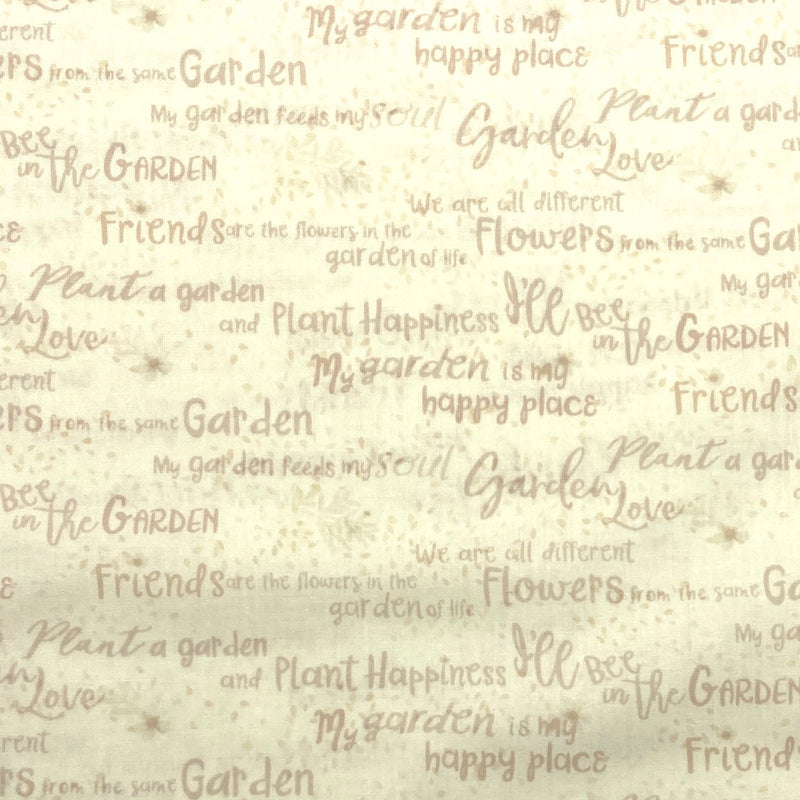 My garden is my
erent
happy place
Friends
ers from the same Garden
My garden feeds my soul
Plant a gard
Garden
Love
Bee
in the GARDEN
We are all different
Friends are the flowers in the
Flowers from the same Ga
garden of life
My gar
Plant a garden
I'll Bee
and Plant Happiness
in the GARDEN
Love
My garden is my
erent
happy place
Friends
ers from the same Garden
My garden feeds my soul
Plant a gard
Garden
Love
Bee
in the GARDEN
We are all different
Friends are the flowers in the
Flowers from the same Ga
garden of life
My ga
Plant a garden
I'll Bee
and Plant Happiness
in the GARDEN
Love
My garden is my
rent
happy place
Friend
rs from the same Garden